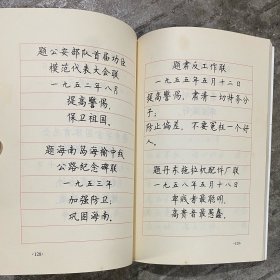 题公安部队首届功臣
模范代表大会联
一九五二年八月
提高警惕，
保卫祖国。
题海南岛海榆中线
公路纪念碑联
一九五三年
加强防卫，
巩固海南。
·128·
题肃反工作联
一九五五年五月十二日
提高警惕，肃清一切特务分
子；
防止偏差，不要冤枉一个好
人。
题丹东拖拉机配件厂联
一九五八年五月十八日
卑贱者最聪明，
高贵者最愚蠢。
·129·